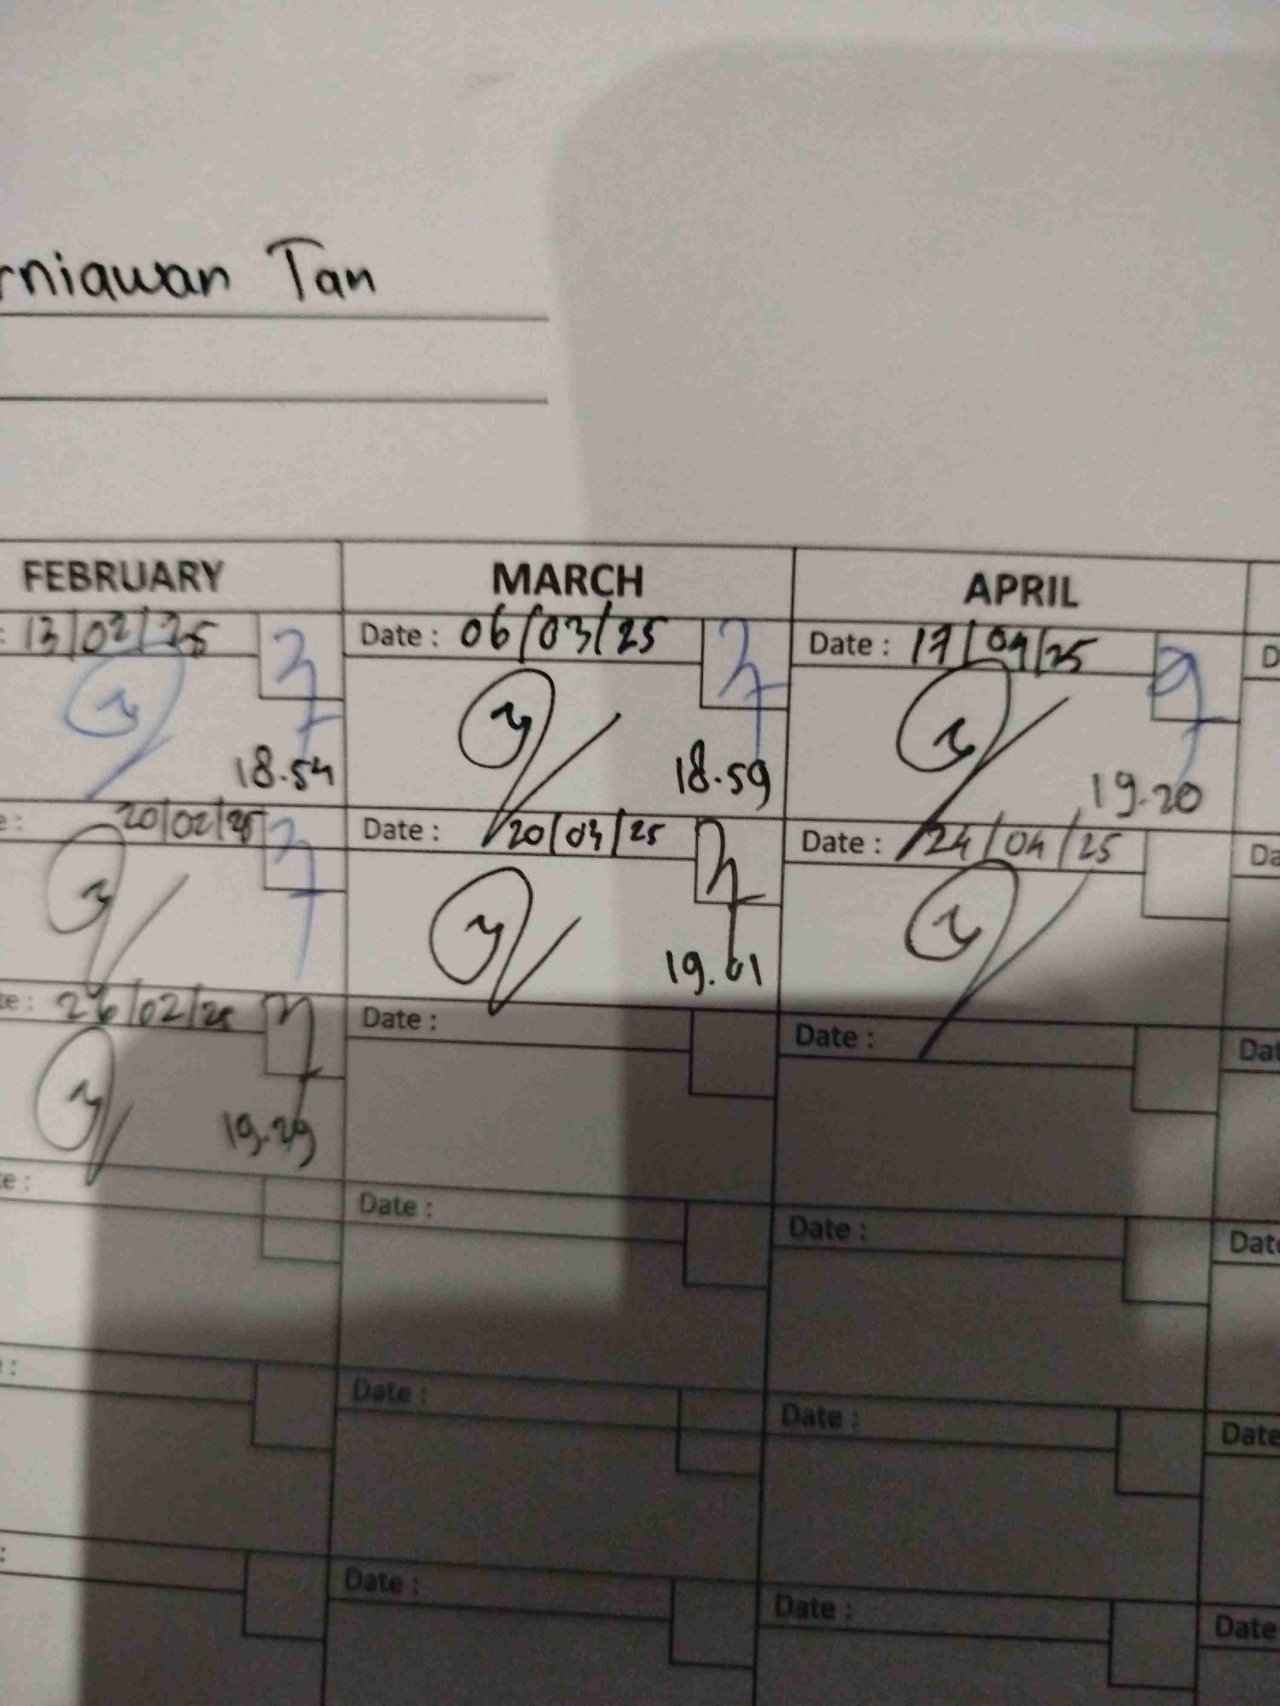 rniawan Tan
FEBRUARY MARCH APRIL
: 13/02/25 Date : 06/03/25 Date : 17/04/25 D
18.54 18.59 19.20
e : 20/02/25 Date : 20/03/25 Date : 24/04/25 Da
19.01
te : 26/02/25 Date : Date : Dat
19.29
te : Date : Date : Date
: Date : Date : Date
: Date : Date : Date